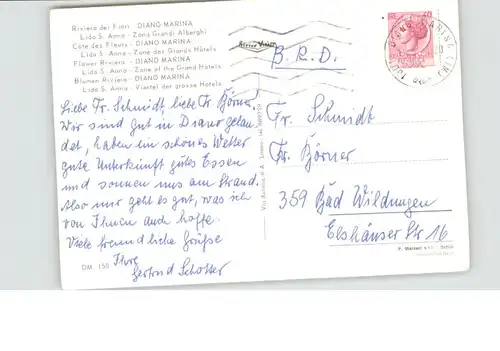 Riviera dei Fiori - DIANO MARINA
Lido S. Anna - Zona Grandi Alberghi
Côte des Fleurs - DIANO MARINA
Lido S. Anna - Zone des Grands Hôtels
Flower Riviera - DIANO MARINA
Lido S. Anna - Zone of the Grand Hotels
Blumen Riviera - DIANO MARINA
Lido S. Anna - Viertel der grosse Hotels
Liebe Fr. Schmidt, liebe Fr. Börner!
Wir sind gut in Diano gelan-
det, haben ein schönes Wetter
gute Unterkunft gutes Essen
und sonnen uns am Strand.
Also mir geht es gut, was ich
von Ihnen auch hoffe.
Viele freundliche Grüße
Ihre
Gertrud Schotter
DM. 150
B.R.D.
Fr. Schmidt
Fr. Börner
359 Bad Wildungen
Elshäuser Str 16